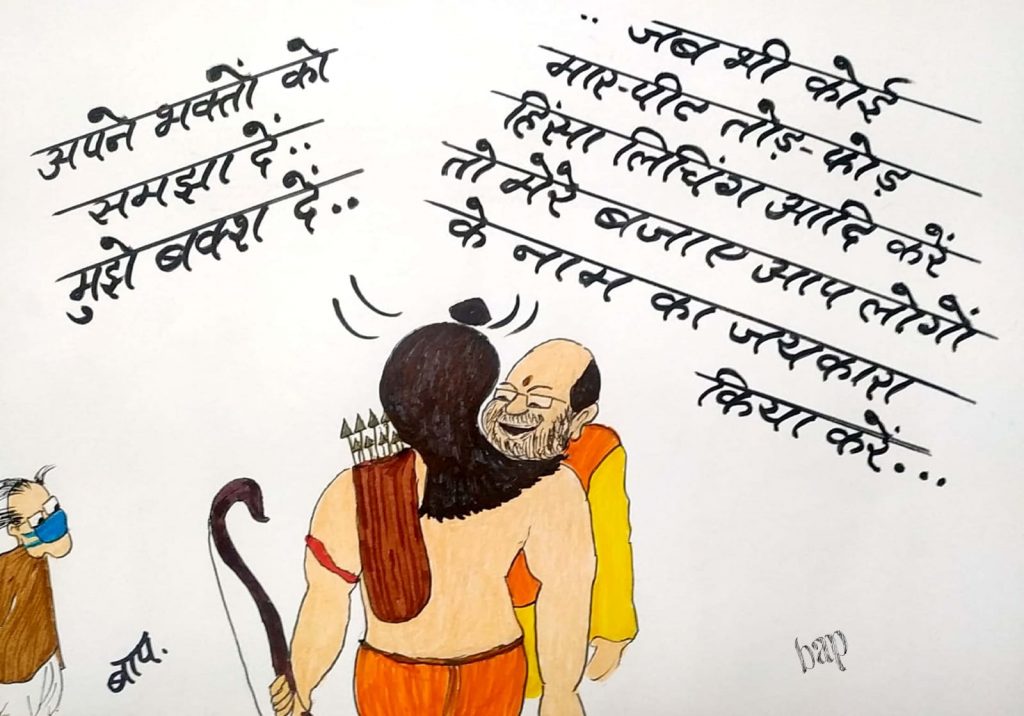 अपने भक्तों को
समझा दें..
मुझे बक्श दें..
.. जब भी कोई
मार-पीट तोड़-फोड़
हिंसा लिचिंग आदि करें
तो मेरे बजाए आप लोगों
के नाम का जयकारा
किया करें...
बाप.
bap